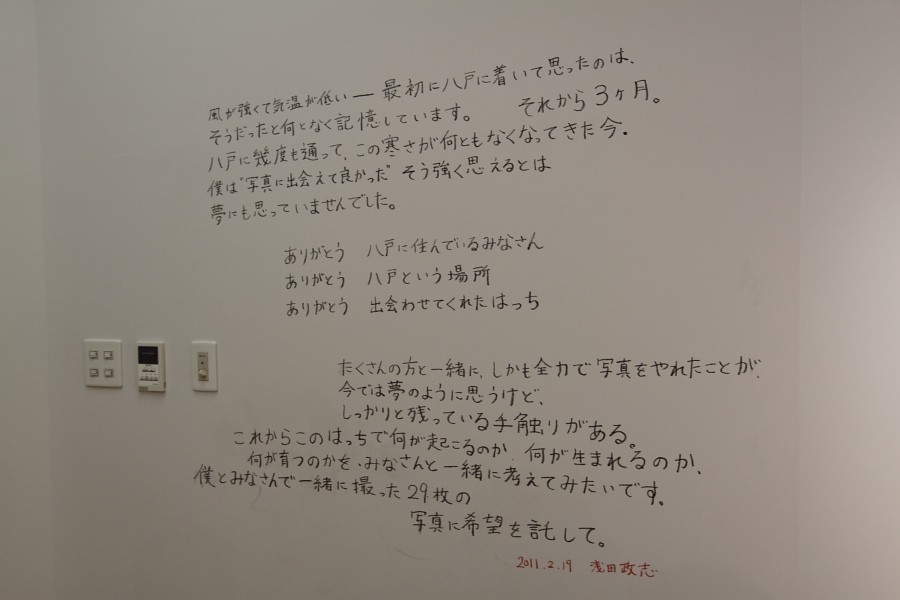 風が強くて気温が低い ― 最初に八戸に着いて思ったのは、
そうだったと何となく記憶しています。　それから3ヶ月。
八戸に幾度も通って、この寒さが何ともなくなってきた今、
僕は"写真に出会えて良かった"そう強く思えるとは
夢にも思っていませんでした。
ありがとう　八戸に住んでいるみなさん
ありがとう　八戸という場所
ありがとう　出会わせてくれたはっち
たくさんの方と一緒に、しかも全力で写真をやれたことが、
今では夢のように思うけど、
しっかりと残っている手触りがある。
これからこのはっちで何が起こるのか、何が生まれるのか、
何が育つのかを、みなさんと一緒に考えてみたいです。
僕とみなさんで一緒に撮った29枚の
写真に希望を託して。
2011.2.19　浅田政志